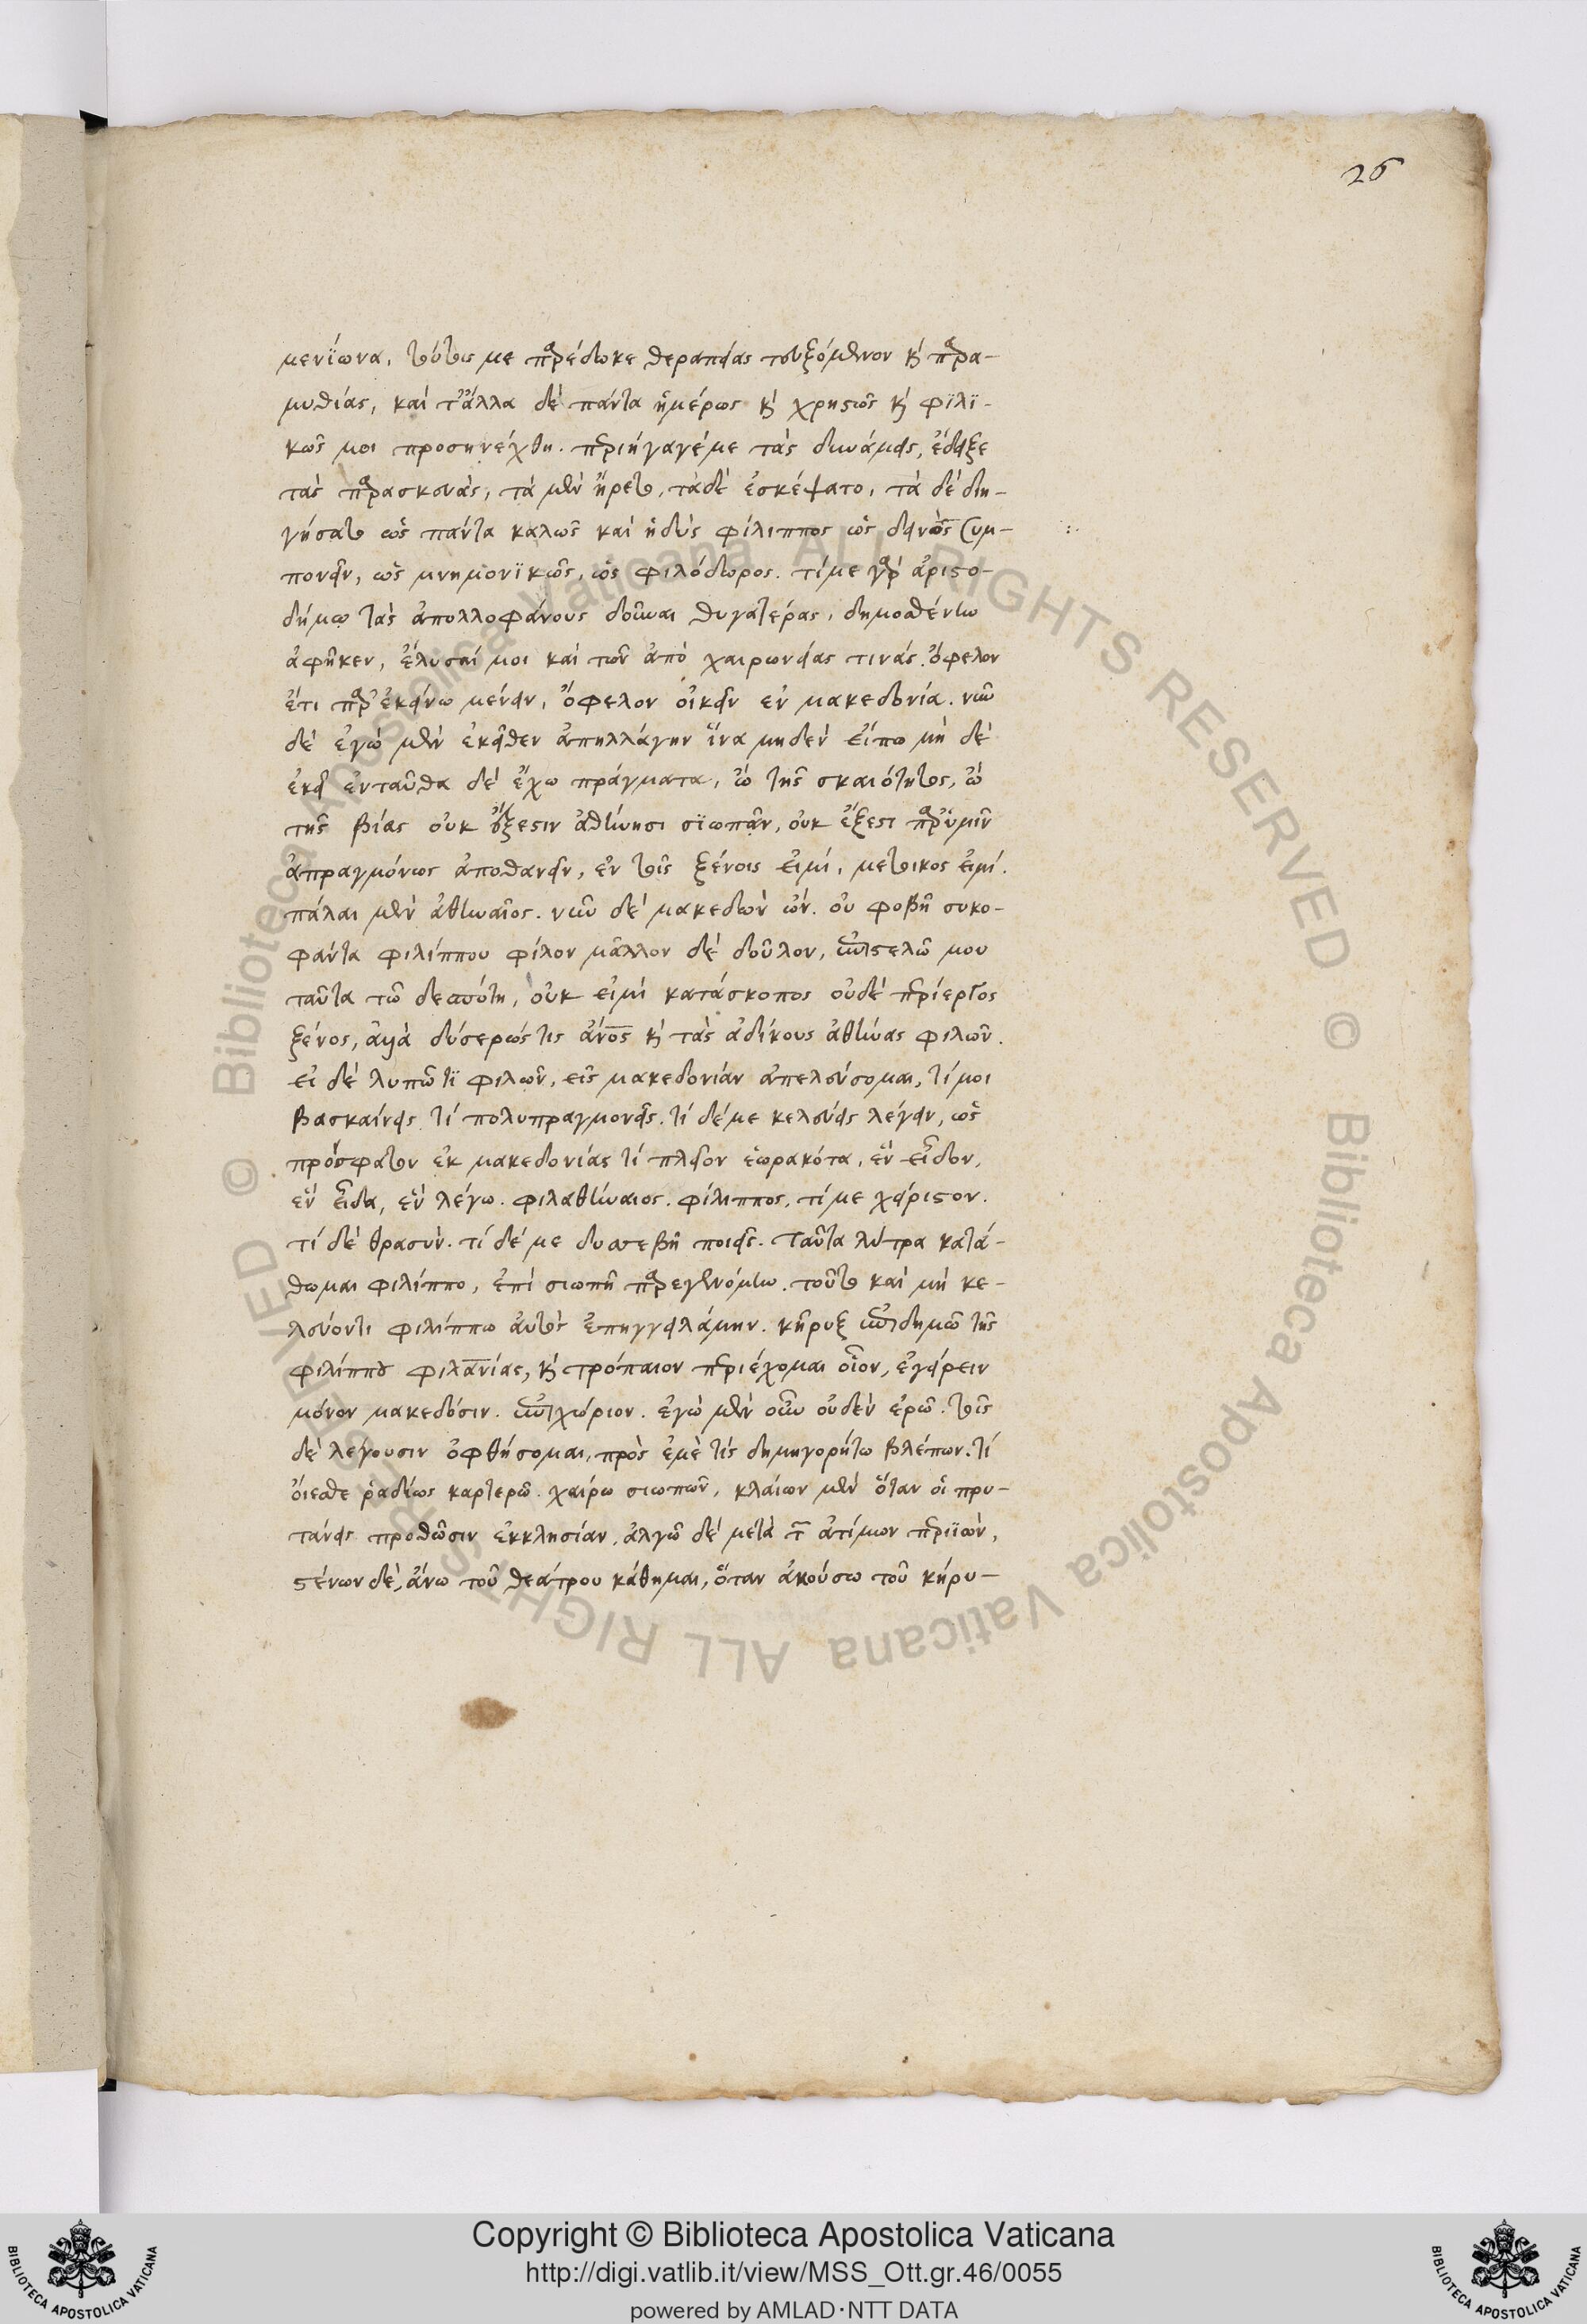 26
μενίωνα, τούτω με παρέδωκε θεραπείας τευξόμενον κ παρα-
μυθίας, καὶ τἄλλα δὲ πάντα ἡμέρως κ χρηστῶς κ φϊλϊ-
κῶς μοι προσηνέχθη. περιήγαγέ με τὰς δυνάμεις, ἔδειξε
τὰς παρασκευὰς, τὰ μὲν ἤρετο, τὰ δὲ ἐσκέψατο, τὰ δὲ διη-
γήσατο ὡς πάντα καλῶς καὶ ἡδὺς φίλιππος ὡς δεινὸς συμ-
πονεῖν, ὡς μνημονϊκῶς, ὡς φιλόδωρος. τί με γὰρ ἀριστο-
δήμω τὰς ἀπολλοφάνους δοῦναι θυγατέρας, δημοσθένην
ἀφῆκεν, ἔλυσέ μοι καὶ τῶν ἀπὸ χαιρωνείας τινάς. ὄφελον
ἔτι παρ' ἐκείνω μένειν, ὄφελον οἰκεῖν ἐν μακεδονία. νῦν
δὲ ἐγὼ μὲν ἐκεῖθεν ἀπηλλάγην ἵνα μηδὲν εἴπω μὴ δὲ
ἐκεῖ ἐνταῦθα δὲ ἔχω πράγματα, ὢ τῆς σκαιότητος, ὢ
τῆς βίας οὐκ ἔξεστιν ἀθήνησι σϊωπᾶν, οὐκ ἔξεστι παρ' ὑμῖν
ἀπραγμόνως ἀποθανεῖν, ἐν τοῖς ξένοις εἰμί, μέτοικος εἰμί.
πάλαι μὲν ἀθηναῖος. νῦν δὲ μακεδὼν ὤν. οὐ φοβῆ συκο-
φάντα φιλίππου φίλον μᾶλλον δὲ δοῦλον, ἐπιστελῶ μου
ταῦτα τῶ δεσπότη, οὐκ εἰμὶ κατάσκοπος οὐδὲ περίεργος
ξένος, ἀλλὰ δύσερώς τις ἄνος κ τὰς ἀδίκους ἀθήνας φιλῶν.
εἰ δὲ λυπῶ τϊ φιλῶν, εἰς μακεδονίαν ἀπελεύσομαι, τί μοι
βασκαίνεις τί πολυπραγμονεῖς. τί δέ με κελεύεις λέγειν, ὡς
πρόσφατον ἐκ μακεδονίας τί πλέον ἑωρακότα, ἓν εἶδον,
ἓν οἶδα, ἓν λέγω. φιλαθήναιος. φίλιππος. τί με χείριστον.
τί δὲ θρασὺν. τί δέ με δυσσεβῆ ποιεῖς. ταῦτα λύτρα κατά-
θωμαι φιλίππο, ἐπὶ σιωπῆ παρεγενόμην. τοῦτο καὶ μὴ κε-
λεύοντι φιλίππω αὐτὸς ἐπηγγειλάμην. κῆρυξ ἐπιδημῶ τῆς
φιλίππου φιλανίας, κ τρόπαιον περιέχομαι οἷον, ἐγείρειν
μόνον μακεδόσιν. ἐπιχώριον. ἐγὼ μὲν οὖν οὐδὲν ἐρῶ. τοῖς
δὲ λέγουσιν ὀφθήσομαι, πρὸς ἐμὲ τίς δημηγορήτω βλέπων. τί
οἴεσθε ῥαδίως καρτερῶ. χαίρω σιωπῶν, κλαίων μὲν ὅταν οἱ πρυ-
τάνεις προθῶσιν ἐκκλησίαν, ἀλγῶ δὲ μετὰ τ ἀτίμων περιϊὼν,
στένων δὲ, ἄνω τοῦ θεάτρου κάθημαι, ὅταν ἀκούσω τοῦ κήρυ-
© Biblioteca Apostolica Vaticana ALL RIGHTS RESERVED © Biblioteca Apostolica Vaticana ALL RIGHTS RESERVED
Copyright © Biblioteca Apostolica Vaticana
http://digi.vatlib.it/view/MSS_Ott.gr.46/0055
powered by AMLAD·NTT DATA
BIBLIOTECA APOSTOLICA VATICANA
BIBLIOTECA APOSTOLICA VATICANA